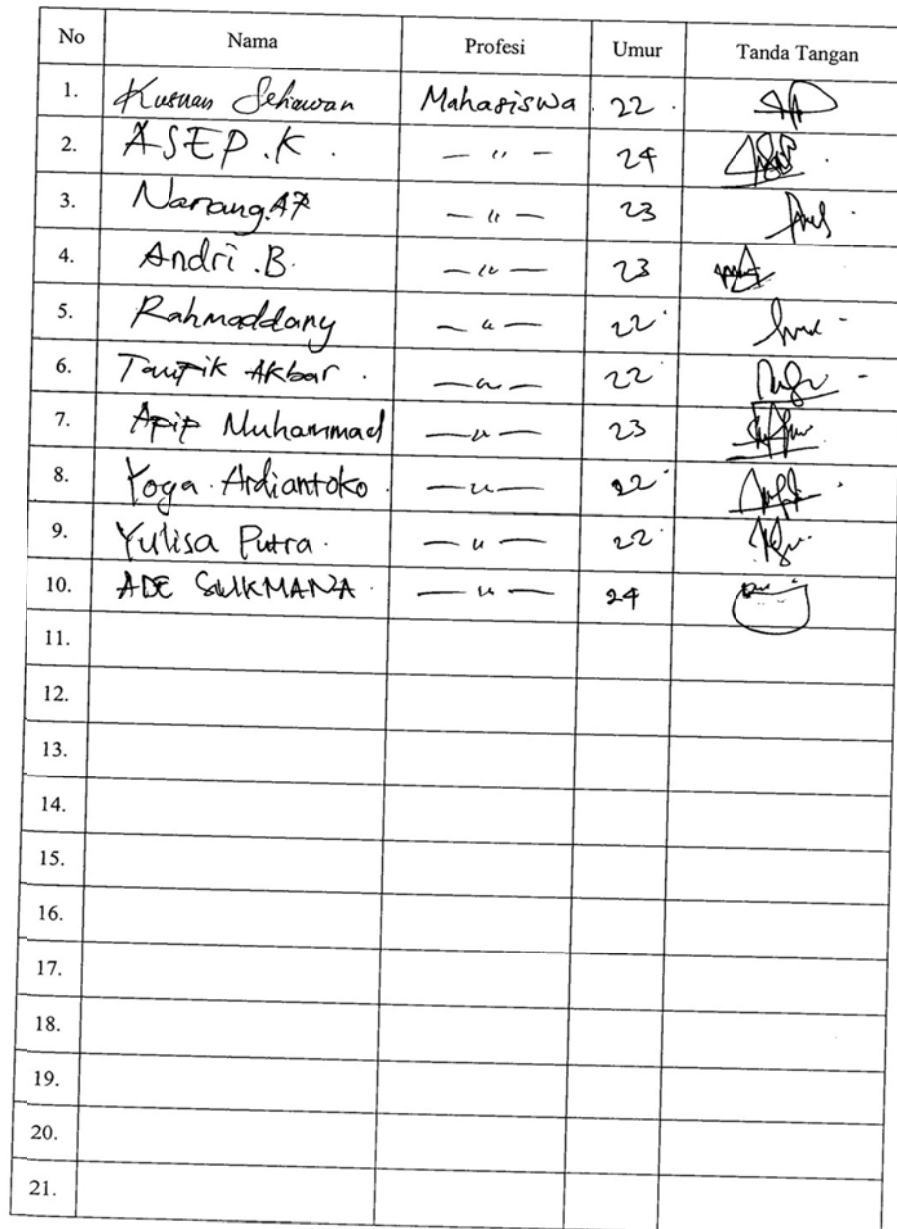 No Nama Profesi Umur Tanda Tangan
1. Kusnan Mahasiswa 22
2. ASEP.K. — " — 24
3. Nanang.A7 — " — 23
4. Andri.B. — " — 23
5. Rahmaddany — " — 22
6. Taufik Akbar. — " — 22
7. Apip Muhammad — " — 23
8. Yoga Ardiantoko. — " — 22
9. Yulisa Putra. — " — 22
10. ADE SUKMANA. — " — 24
11.
12.
13.
14.
15.
16.
17.
18.
19.
20.
21.